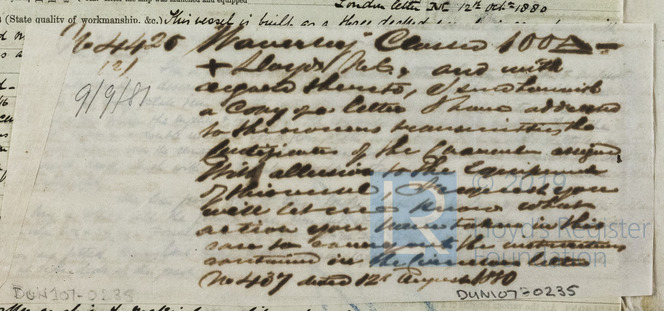 London letter No 12th Octr 1880
(State quality of workmanship. &c.) This vessel is built as a three decked
No 4426 "Waverley" Classed 100A
9/9/81
+ Lloyds and with
regard thereto, I send herewith
a Copy of a letter I have addressed
to the owners transmitting the
Certificate of the Character assigned
With allusion to the Equipment
of this vessel, I request you
will let me know what
action you have taken in this
case to carry out the instructions
contained in the Secretary's letter
No 437 dated 12th August 1880
DUN107-0234
DUN107-0235
© 2019
Lloyd's Register
Foundation
LR